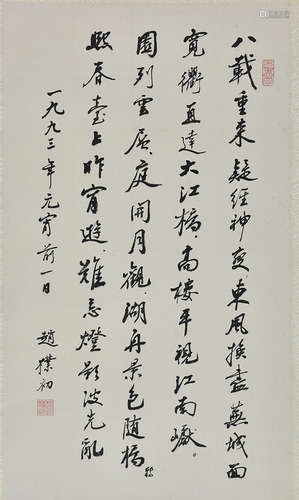 八載重來疑經神更東風換盡蕪城面
寬衢直達大江橋高樓平視江南巘
園列雲屏庭開月觀湖舟景色随橋轉
熙春臺上昨宵遊難忘燈影波光亂
一九九三年元宵前一日
趙樸初